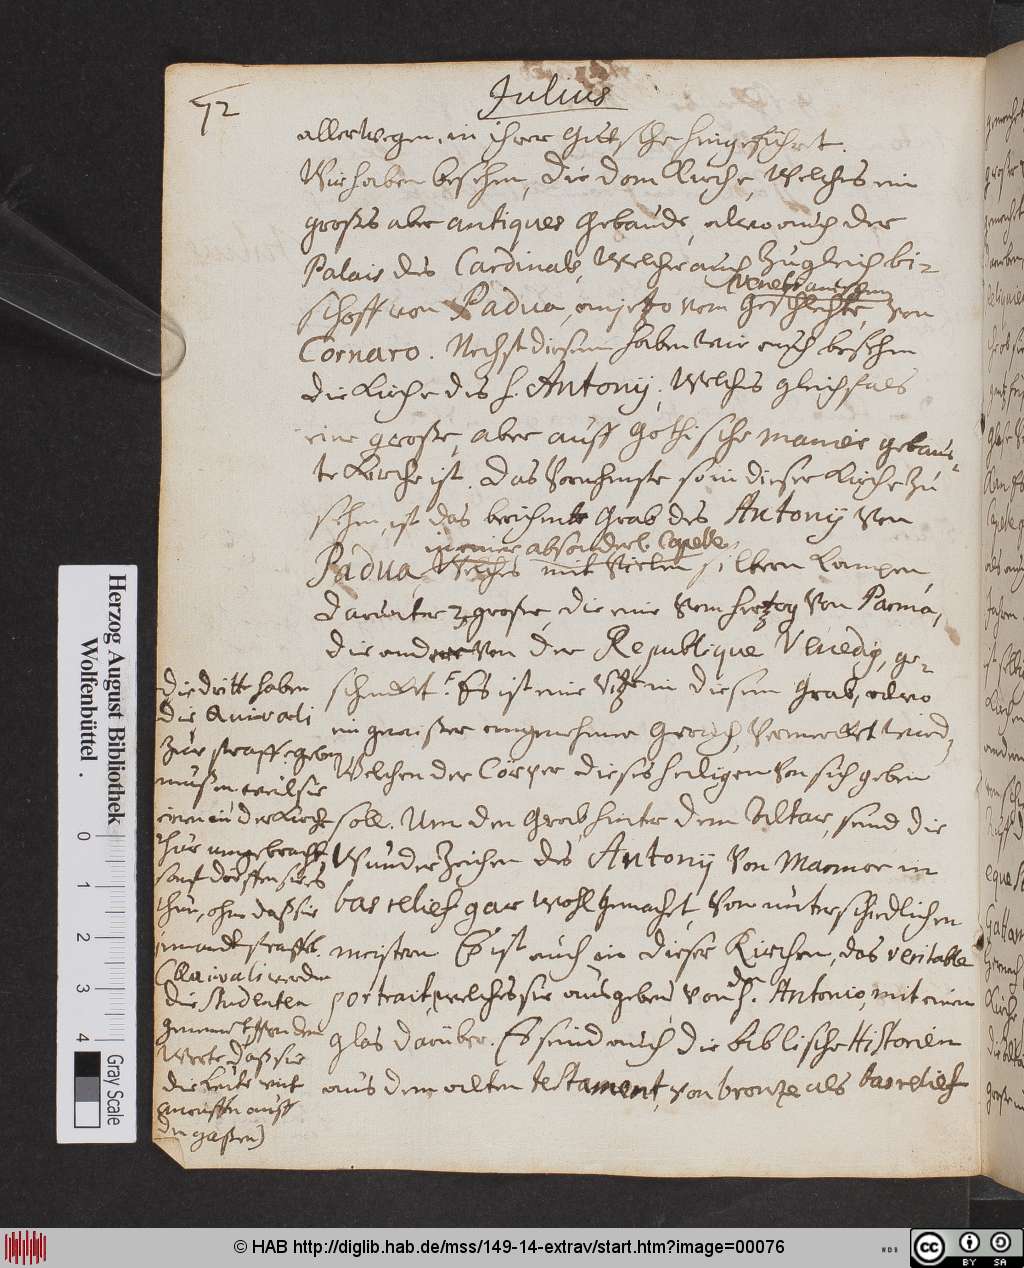 72
Julius
allerwegen, in ihrer Gutsche hingeführt.
Wir haben besehen, die dom Kirche, Welches ein
großes aber antiques Gebäude, alwo auch der
Palais des Cardinals, Welcher auch Zugleich bi-
schoff von Padua, anjetzo vom Geschlechte, von
Cornaro. Nechst diesem haben wir auch besehen
die Kirche des h. Antonij, Welches gleichfals
eine große, aber auff gothische manier gebau-
te Kirche ist. das Vornehmste so in dieser Kirche zu
sehen, ist das berühmte Grab des Antonij von
in einer absonderl. Capelle,
Padua, Welches mit vielen silbern Lampen,
darunter 2 große, die eine vom hertzog von Parma,
die andere von der Republique Venedig, ge-
schenkt. Es ist eine Ritze in diesem Grab, alwo
ein gewisser angenehmer Geruch, vermercket wird,
Welchen der Cörper dieses heiligen von sich geben
soll. Um den Grab, hinter dem Altar, seind die
Wunderzeichen des Antonij von Marmor in
bas relief gar wohl gemacht von unterschiedlichen
meistern. Es ist auch in dieser Kirchen, das veritable
portrait, welches sie ausgeben, von dem h. Antonio, mit einem
glas darüber. Es seind auch die biblische Historien
aus dem alten testament, von bronze als bas relief
die dritte haben
die Quivali
zur straffe geben
müßen, weil sie
einen in der Kirche
thür umgebracht,
sonst dörffen sie es
thun, ohne daß sie
jemandt straffet.
(Quivali werden
die Studenten
genennet, von dem
Worte, daß sie
die Leute mit
anruffen auff
den gaßen)
Herzog August Bibliothek
Wolfenbüttel
0 1 2 3 4
Gray Scale
© HAB http://diglib.hab.de/mss/149-14-extrav/start.htm?image=00076
WDB
CC BY SA